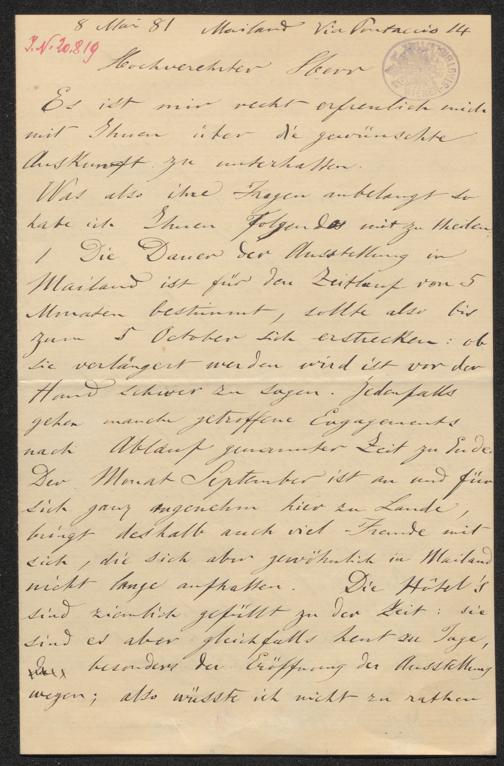 8 Mai 81 Mailand Via Pontaccio 14
J.N. 20.819
Hochverehrter Herr
Es ist mir recht erfreulich mich
mit Ihnen über die gewünschte
Auskunft zu unterhalten.
Was also ihre Fragen anbelangt so
habe ich Ihnen Folgendes mitzutheilen
1 Die Dauer der Ausstellung in
Mailand ist für den Zeitlauf von 5
Monaten bestimmt, sollte also bis
zum 5 October sich erstrecken: ob
sie verlängert werden wird ist vor der
Hand schwer zu sagen. Jedenfalls
gehen manche getroffene Engagements
nach Ablauf genannter Zeit zu Ende.
Der Monat September ist an und für
sich ganz angenehm hier zu Lande,
bringt deshalb auch viel Fremde mit
sich, die sich aber gewöhnlich in Mailand
nicht lange aufhalten. Die Hôtel's
sind ziemlich gefüllt zu der Zeit: sie
sind es aber gleichfalls heut zu Tage,
besonders der Eröffnung der Ausstellung
wegen; also wüsste ich nicht zu rathen